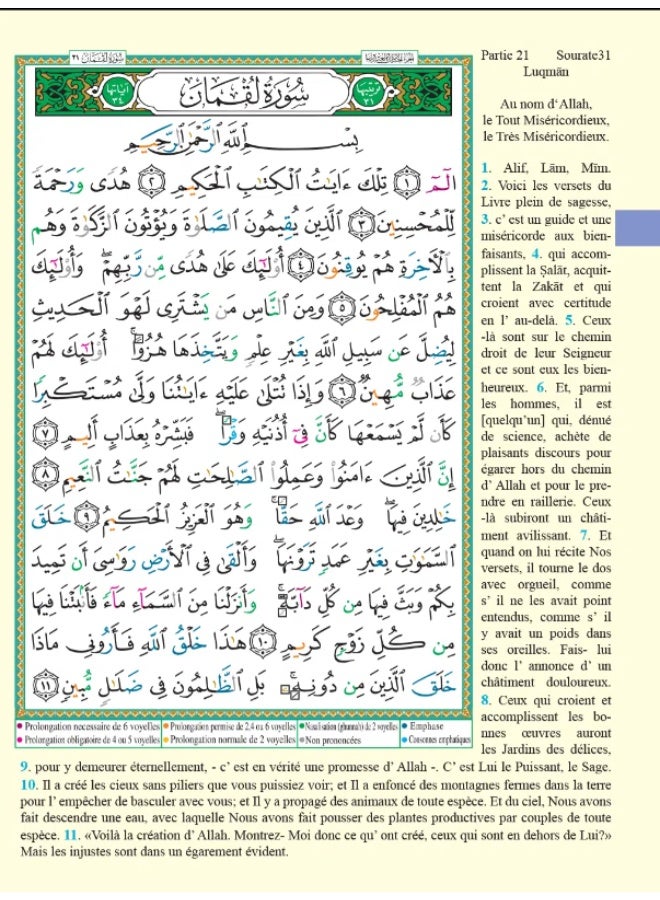 سُورَةُ لُقْمَان ٣١
تَرْتِيبُهَا ٣١
سُورَةُ لُقْمَان
آيَاتُهَا ٣٤
بِسْمِ ٱللَّهِ ٱلرَّحْمَٰنِ ٱلرَّحِيمِ
الٓمٓ ١ تِلْكَ ءَايَٰتُ ٱلْكِتَٰبِ ٱلْحَكِيمِ ٢ هُدًى وَرَحْمَةً
لِّلْمُحْسِنِينَ ٣ ٱلَّذِينَ يُقِيمُونَ ٱلصَّلَوٰةَ وَيُؤْتُونَ ٱلزَّكَوٰةَ وَهُم
بِٱلْأَخِرَةِ هُمْ يُوقِنُونَ ٤ أُو۟لَٰٓئِكَ عَلَىٰ هُدًى مِّن رَّبِّهِمْ ۖ وَأُو۟لَٰٓئِكَ
هُمُ ٱلْمُفْلِحُونَ ٥ وَمِنَ ٱلنَّاسِ مَن يَشْتَرِى لَهْوَ ٱلْحَدِيثِ
لِيُضِلَّ عَن سَبِيلِ ٱللَّهِ بِغَيْرِ عِلْمٍ وَيَتَّخِذَهَا هُزُوًا ۚ أُو۟لَٰٓئِكَ لَهُمْ
عَذَابٌ مُّهِينٌ ٦ وَإِذَا تُتْلَىٰ عَلَيْهِ ءَايَٰتُنَا وَلَّىٰ مُسْتَكْبِرًا
كَأَن لَّمْ يَسْمَعْهَا كَأَنَّ فِىٓ أُذُنَيْهِ وَقْرًا ۖ فَبَشِّرْهُ بِعَذَابٍ أَلِيمٍ ٧
إِنَّ ٱلَّذِينَ ءَامَنُوا۟ وَعَمِلُوا۟ ٱلصَّٰلِحَٰتِ لَهُمْ جَنَّٰتُ ٱلنَّعِيمِ ٨
خَٰلِدِينَ فِيهَا ۖ وَعْدَ ٱللَّهِ حَقًّا ۚ وَهُوَ ٱلْعَزِيزُ ٱلْحَكِيمُ ٩ خَلَقَ
ٱلسَّمَٰوَٰتِ بِغَيْرِ عَمَدٍ تَرَوْنَهَا ۖ وَأَلْقَىٰ فِى ٱلْأَرْضِ رَوَٰسِىَ أَن تَمِيدَ
بِكُمْ وَبَثَّ فِيهَا مِن كُلِّ دَآبَّةٍ ۚ وَأَنزَلْنَا مِنَ ٱلسَّمَآءِ مَآءً فَأَنۢبَتْنَا فِيهَا
مِن كُلِّ زَوْجٍ كَرِيمٍ ١٠ هَٰذَا خَلْقُ ٱللَّهِ فَأَرُونِى مَاذَا
خَلَقَ ٱلَّذِينَ مِن دُونِهِۦ ۚ بَلِ ٱلظَّٰلِمُونَ فِى ضَلَٰلٍ مُّبِينٍ ١١
• Prolongation necessaire de 6 voyelles • Prolongation permise de 2,4 ou 6 voyelles • Nasalisation (ghunnah) de 2 voyelles • Emphase
• Prolongation obligatoire de 4 ou 5 voyelles • Prolongation normale de 2 voyelles • Non prononcées • Consonnes emphatiques
Partie 21 Sourate31
Luqmān
Au nom d‘Allah,
le Tout Miséricordieux,
le Très Miséricordieux.
1. Alif, Lām, Mīm.
2. Voici les versets du
Livre plein de sagesse,
3. c’ est un guide et une
miséricorde aux bien-
faisants, 4. qui accom-
plissent la Ṣalāt, acquit-
tent la Zakāt et qui
croient avec certitude
en l’ au-delà. 5. Ceux
-là sont sur le chemin
droit de leur Seigneur
et ce sont eux les bien-
heureux. 6. Et, parmi
les hommes, il est
[quelqu’un] qui, dénué
de science, achète de
plaisants discours pour
égarer hors du chemin
d’ Allah et pour le pre-
ndre en raillerie. Ceux
-là subiront un châti-
ment avilissant. 7. Et
quand on lui récite Nos
versets, il tourne le dos
avec orgueil, comme
s’ il ne les avait point
entendus, comme s’ il
y avait un poids dans
ses oreilles. Fais- lui
donc l’ annonce d’ un
châtiment douloureux.
8. Ceux qui croient et
accomplissent les bo-
nnes œuvres auront
les Jardins des délices,
9. pour y demeurer éternellement, - c’ est en vérité une promesse d’ Allah -. C’ est Lui le Puissant, le Sage.
10. Il a créé les cieux sans piliers que vous puissiez voir; et Il a enfoncé des montagnes fermes dans la terre
pour l’ empêcher de basculer avec vous; et Il y a propagé des animaux de toute espèce. Et du ciel, Nous avons
fait descendre une eau, avec laquelle Nous avons fait pousser des plantes productives par couples de toute
espèce. 11. «Voilà la création d’ Allah. Montrez- Moi donc ce qu’ ont créé, ceux qui sont en dehors de Lui?»
Mais les injustes sont dans un égarement évident.